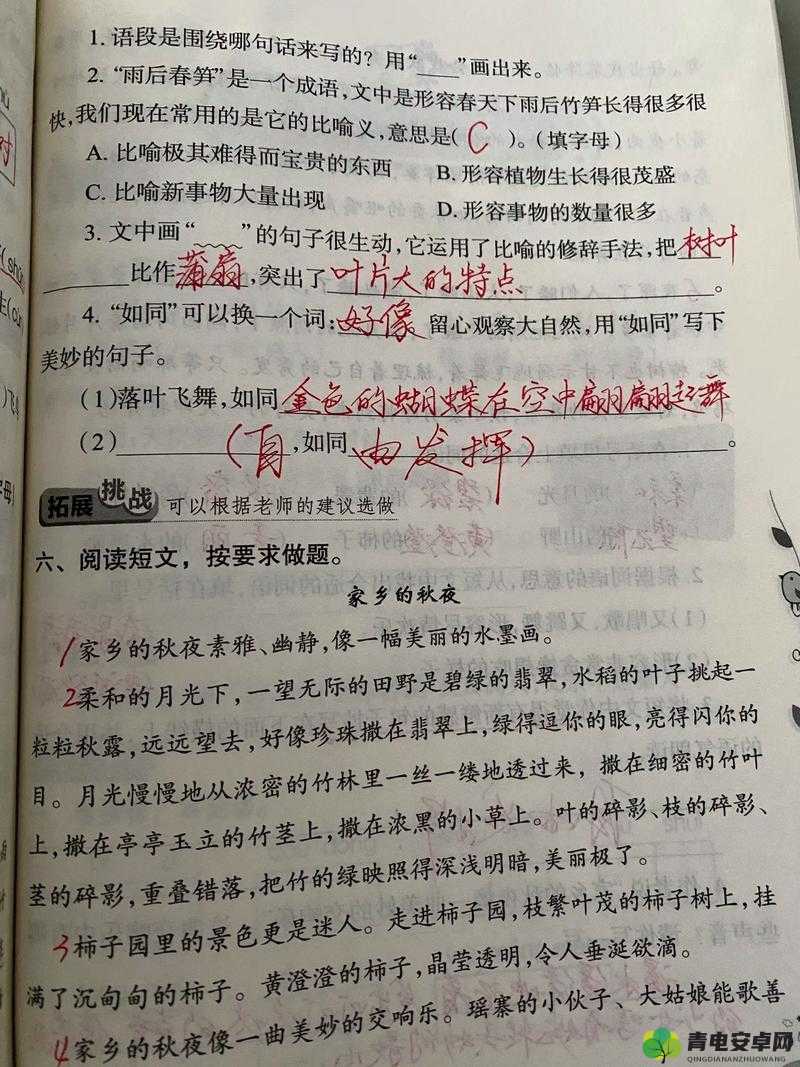 1. 语段是围绕哪句话来写的？用“___”画出来。
2. “雨后春笋”是一个成语，文中是形容春天下雨后竹笋长得很多很
快，我们现在常用的是它的比喻义，意思是( C )。（填字母）
A. 比喻极其难得而宝贵的东西 B. 形容植物生长得很茂盛
C. 比喻新事物大量出现 D. 形容事物的数量很多
3. 文中画“﹏﹏”的句子很生动，它运用了比喻的修辞手法，把树叶
比作蒲扇，突出了叶片大的特点。
4. “如同”可以换一个词：好像 留心观察大自然，用“如同”写下
美妙的句子。
(1)落叶飞舞，如同金色的蝴蝶在空中翩翩起舞
(2)（自，如同由发挥）。
拓展挑战 可以根据老师的建议选做
六、阅读短文，按要求做题。
家乡的秋夜
1家乡的秋夜素雅、幽静，像一幅美丽的水墨画。
2柔和的月光下，一望无际的田野是碧绿的翡翠，水稻的叶子挑起一
粒粒秋露，远远望去，好像珍珠撒在翡翠上，绿得逗你的眼，亮得闪你的
目。月光慢慢地从浓密的竹林里一丝一缕地透过来，撒在细密的竹叶
上，撒在亭亭玉立的竹茎上，撒在浓黑的小草上。叶的碎影、枝的碎影、
茎的碎影，重叠错落，把竹的绿映照得深浅明暗，美丽极了。
3柿子园里的景色更是迷人。走进柿子园，枝繁叶茂的柿子树上，挂
满了沉甸甸的柿子。黄澄澄的柿子，晶莹透明，令人垂涎欲滴。
4家乡的秋夜像一曲美妙的交响乐。瑶寨的小伙子、大姑娘能歌善
青电安卓网
QINGDIANANZHUOWANG